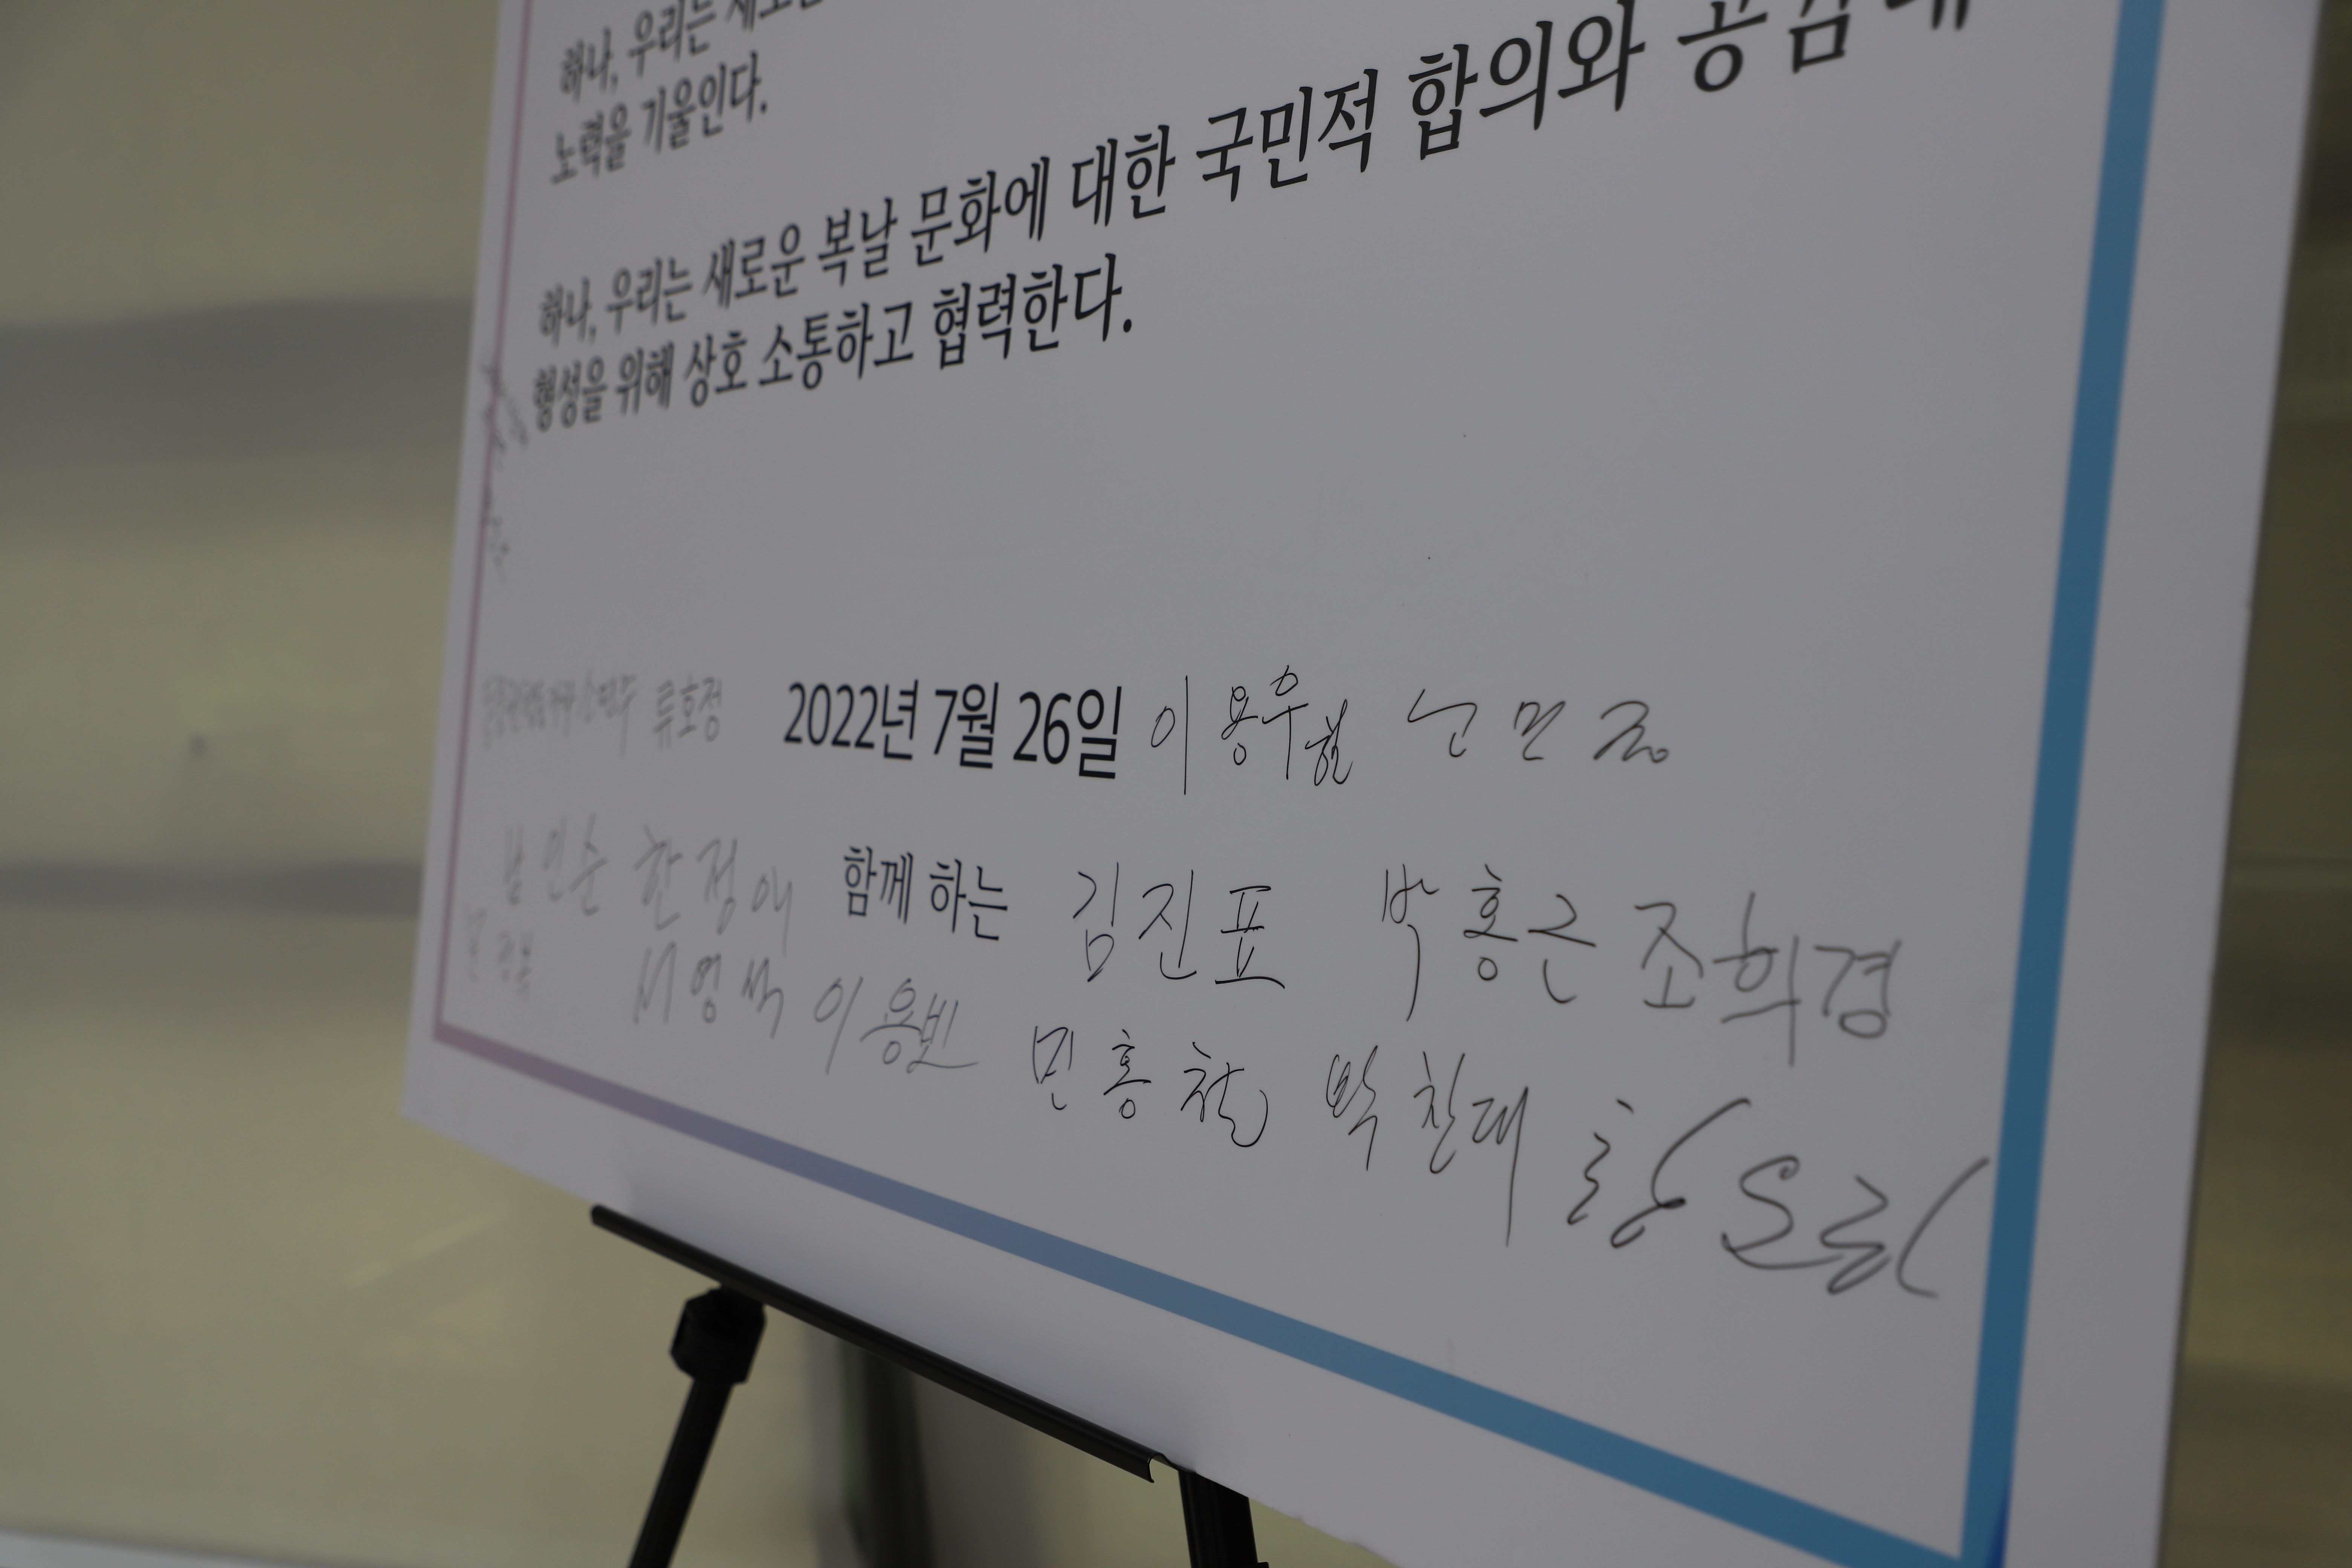 하나, 우리는 새로운
노력을 기울인다.
하나, 우리는 새로운 복날 문화에 대한 국민적 합의와 공감대
형성을 위해 상호 소통하고 협력한다.
류호정 2022년 7월 26일 이용우
남인순 한정애 함께 하는 김진표 박홍근 조희경
서영석 이용빈 민홍철 박찬대